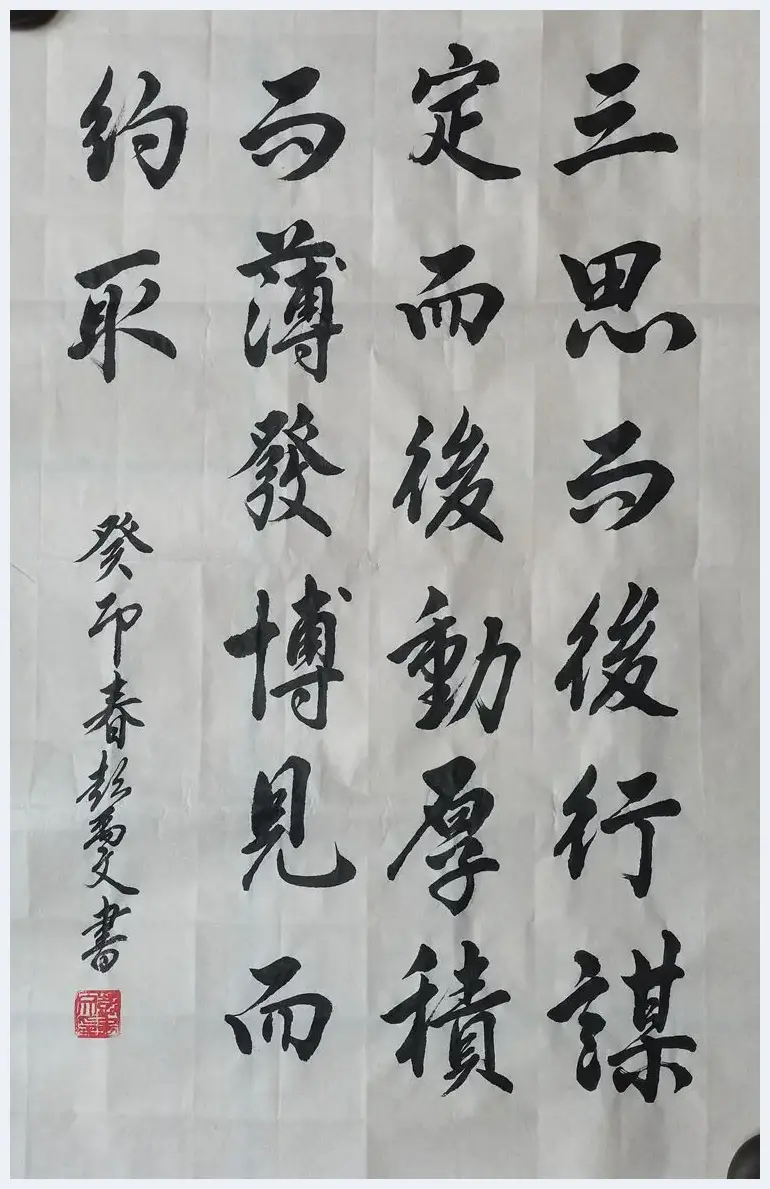 三思而後行謀
定而後動厚積
而薄發博見而
約取
癸卯春彭爲文書